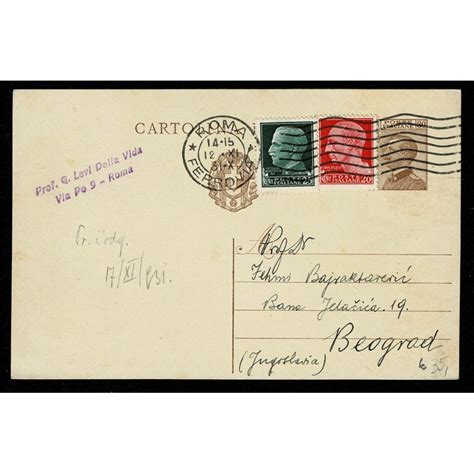 CARTO
ROMA
14-15
12 XI
FERROVIA
POSTE
ITALIANE 25
POSTE
ITALIANE 20
Prof. G. Levi Della Vida
Via Po 9 - Roma
7/XI/931.
Prof Dr
Fehmi Bajraktarević
Bana Jelačića, 19.
Beograd
(Jugoslavia)